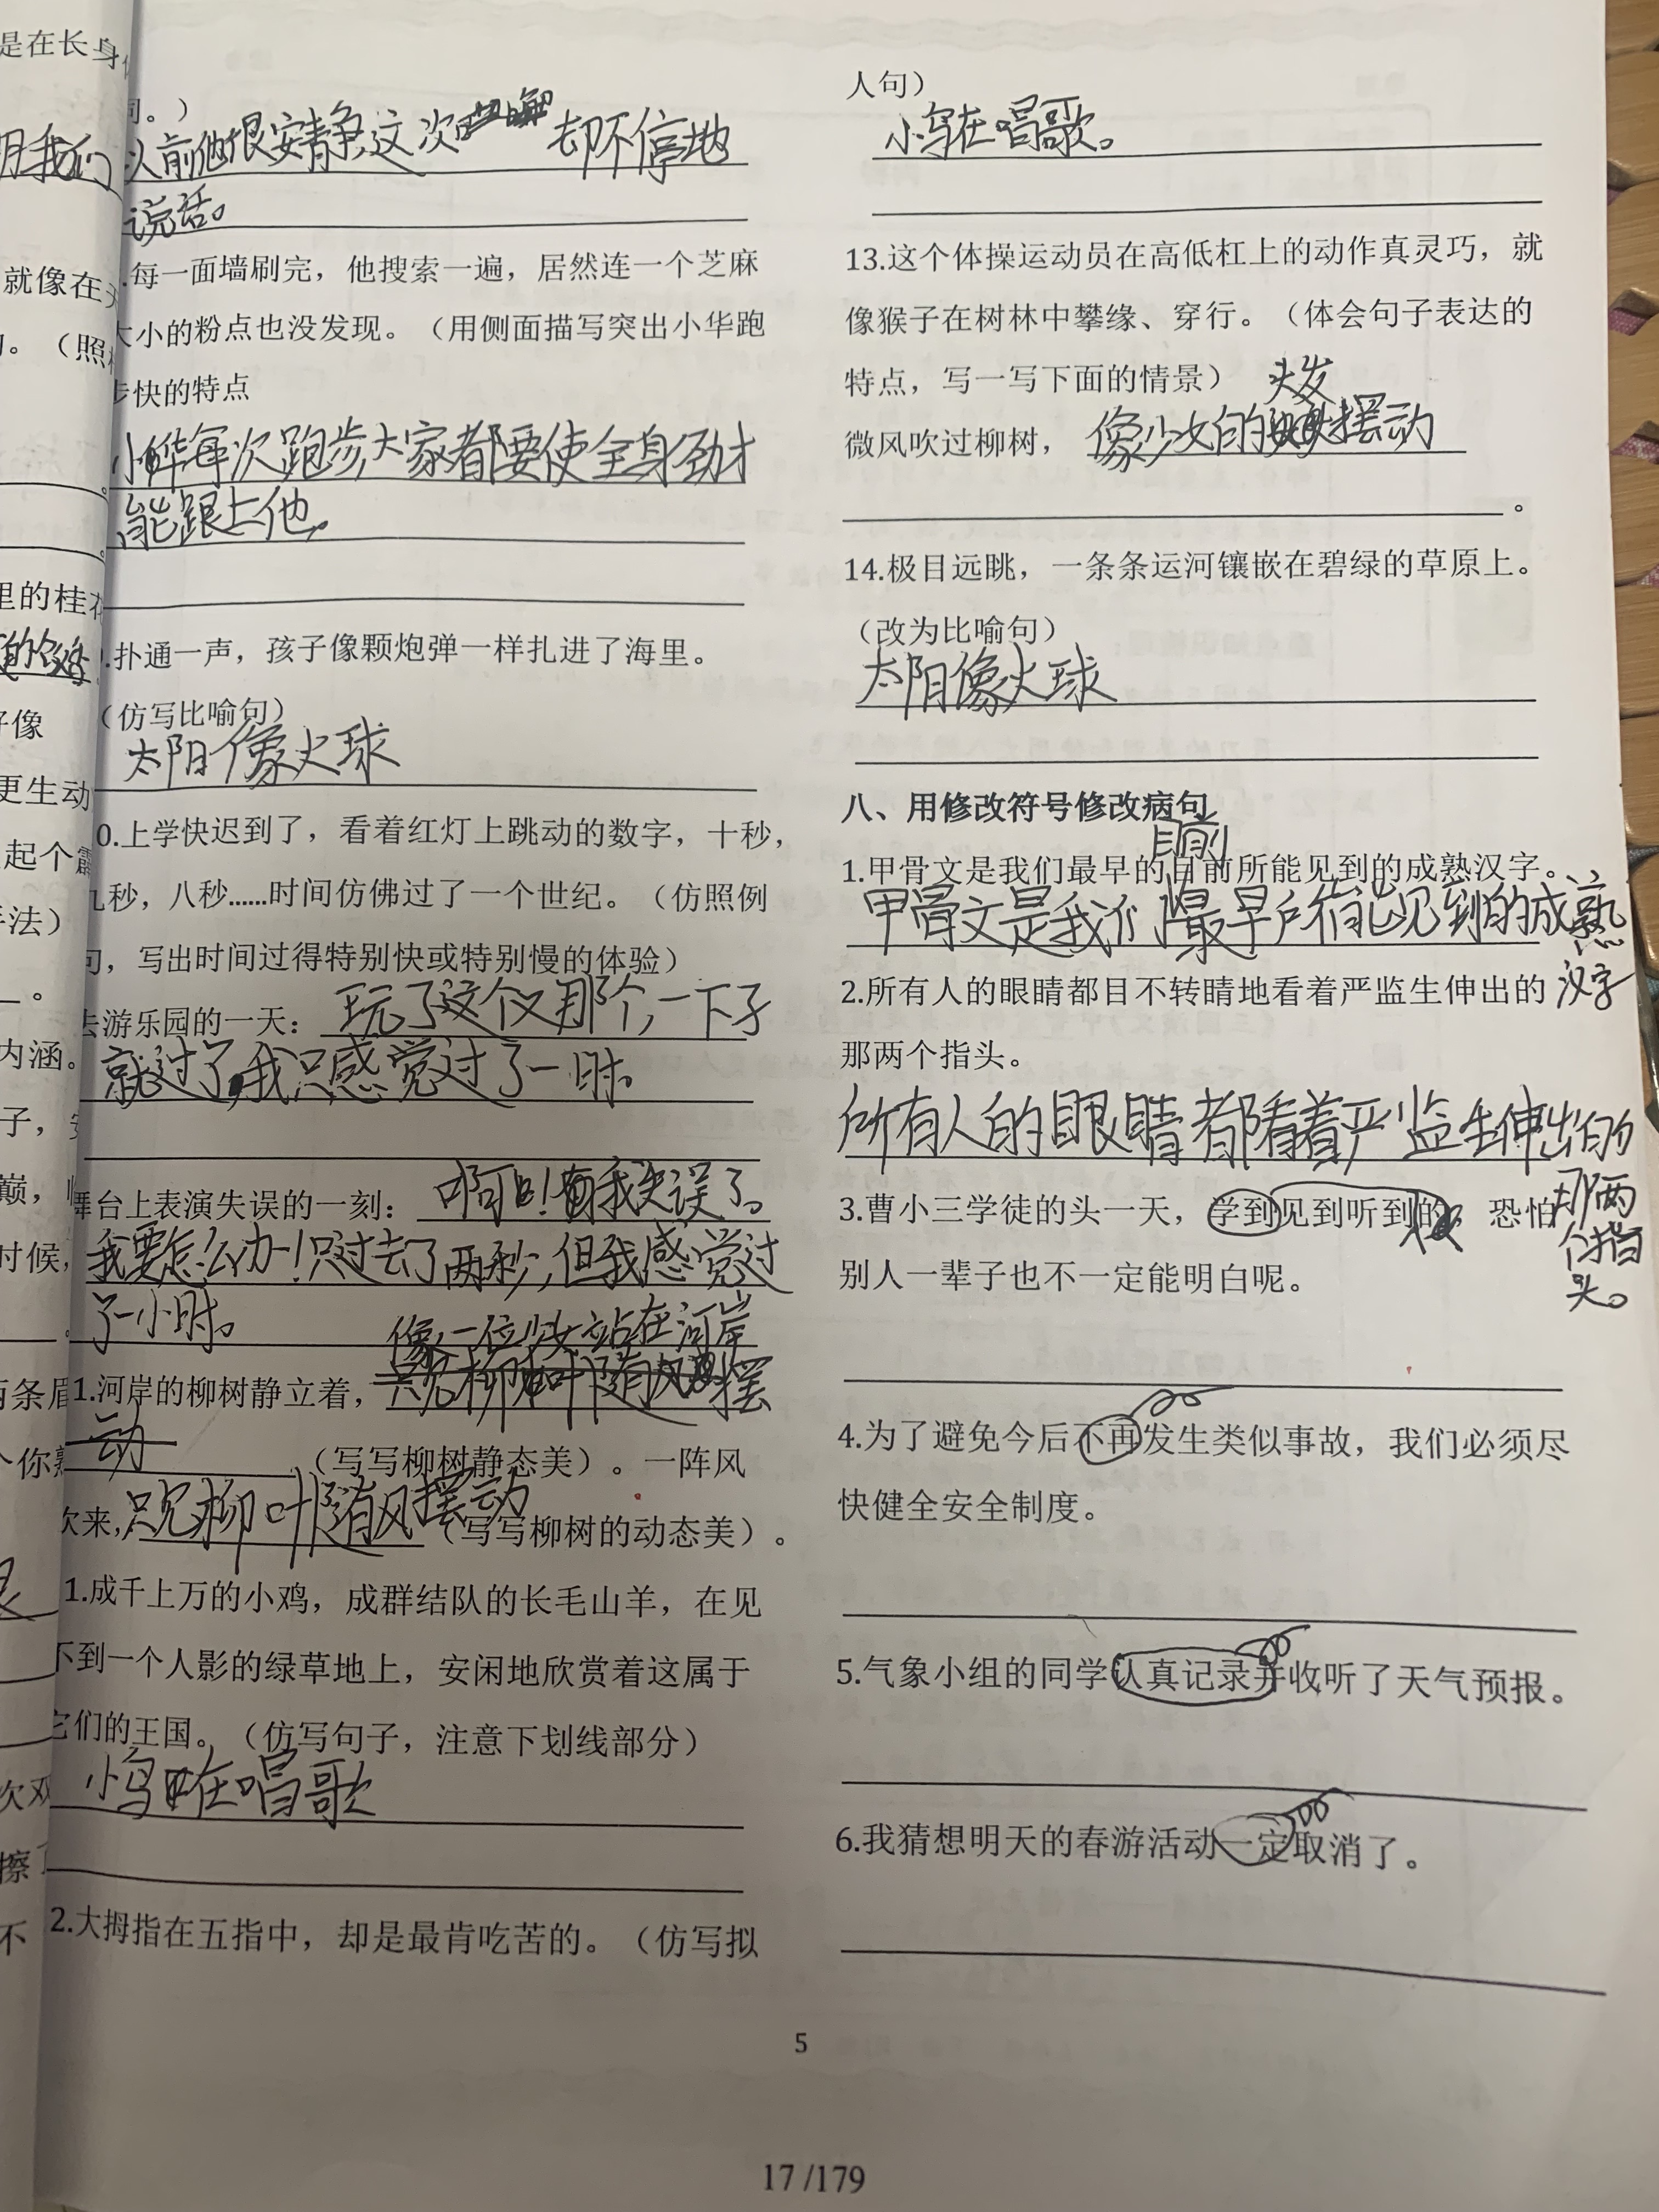 是在长身
词。）
以前他很安静，这次 却不停地
说话。
明我们
就像在
。（照
里的桂花
好像
更生动
起个霹
手法）
内涵。
子，
巅，
时候，
两条眉
个你熟
次双
擦了
不
.每一面墙刷完，他搜索一遍，居然连一个芝麻
大小的粉点也没发现。（用侧面描写突出小华跑
步快的特点
小华每次跑步，大家都要使全身劲才
能跟上他。
.扑通一声，孩子像颗炮弹一样扎进了海里。
（仿写比喻句）
太阳像火球
0.上学快迟到了，看着红灯上跳动的数字，十秒，
九秒，八秒……时间仿佛过了一个世纪。（仿照例
句，写出时间过得特别快或特别慢的体验）
去游乐园的一天：玩了这个又那个，一下子
就过了，我只感觉过了一时。
舞台上表演失误的一刻：啊！我失误了。
我要怎么办！只过去了两秒，但我感觉过
了一小时。
像一位少女站在河岸
1.河岸的柳树静立着，只见柳叶随风摆
动
（写写柳树静态美）。一阵风
吹来，只见柳叶随风摆动（写写柳树的动态美）。
1.成千上万的小鸡，成群结队的长毛山羊，在见
不到一个人影的绿草地上，安闲地欣赏着这属于
它们的王国。（仿写句子，注意下划线部分）
小鸟在唱歌
2.大拇指在五指中，却是最肯吃苦的。（仿写拟
人句）
小鸟在唱歌。
13.这个体操运动员在高低杠上的动作真灵巧，就
像猴子在树林中攀缘、穿行。（体会句子表达的
特点，写一写下面的情景）
头发
微风吹过柳树，像少女的摆动
。
14.极目远眺，一条条运河镶嵌在碧绿的草原上。
（改为比喻句）
太阳像火球
八、用修改符号修改病句
目前
1.甲骨文是我们最早的目前所能见到的成熟汉字。
甲骨文是我们最早所能见到的成熟
汉字
2.所有人的眼睛都目不转睛地看着严监生伸出的
那两个指头。
所有人的眼睛都看着严监生伸出的
那两
个指
头。
3.曹小三学徒的头一天，学到见到听到的 恐怕
别人一辈子也不一定能明白呢。
4.为了避免今后不再发生类似事故，我们必须尽
快健全安全制度。
5.气象小组的同学认真记录并收听了天气预报。
6.我猜想明天的春游活动一定取消了。
5
17 /179